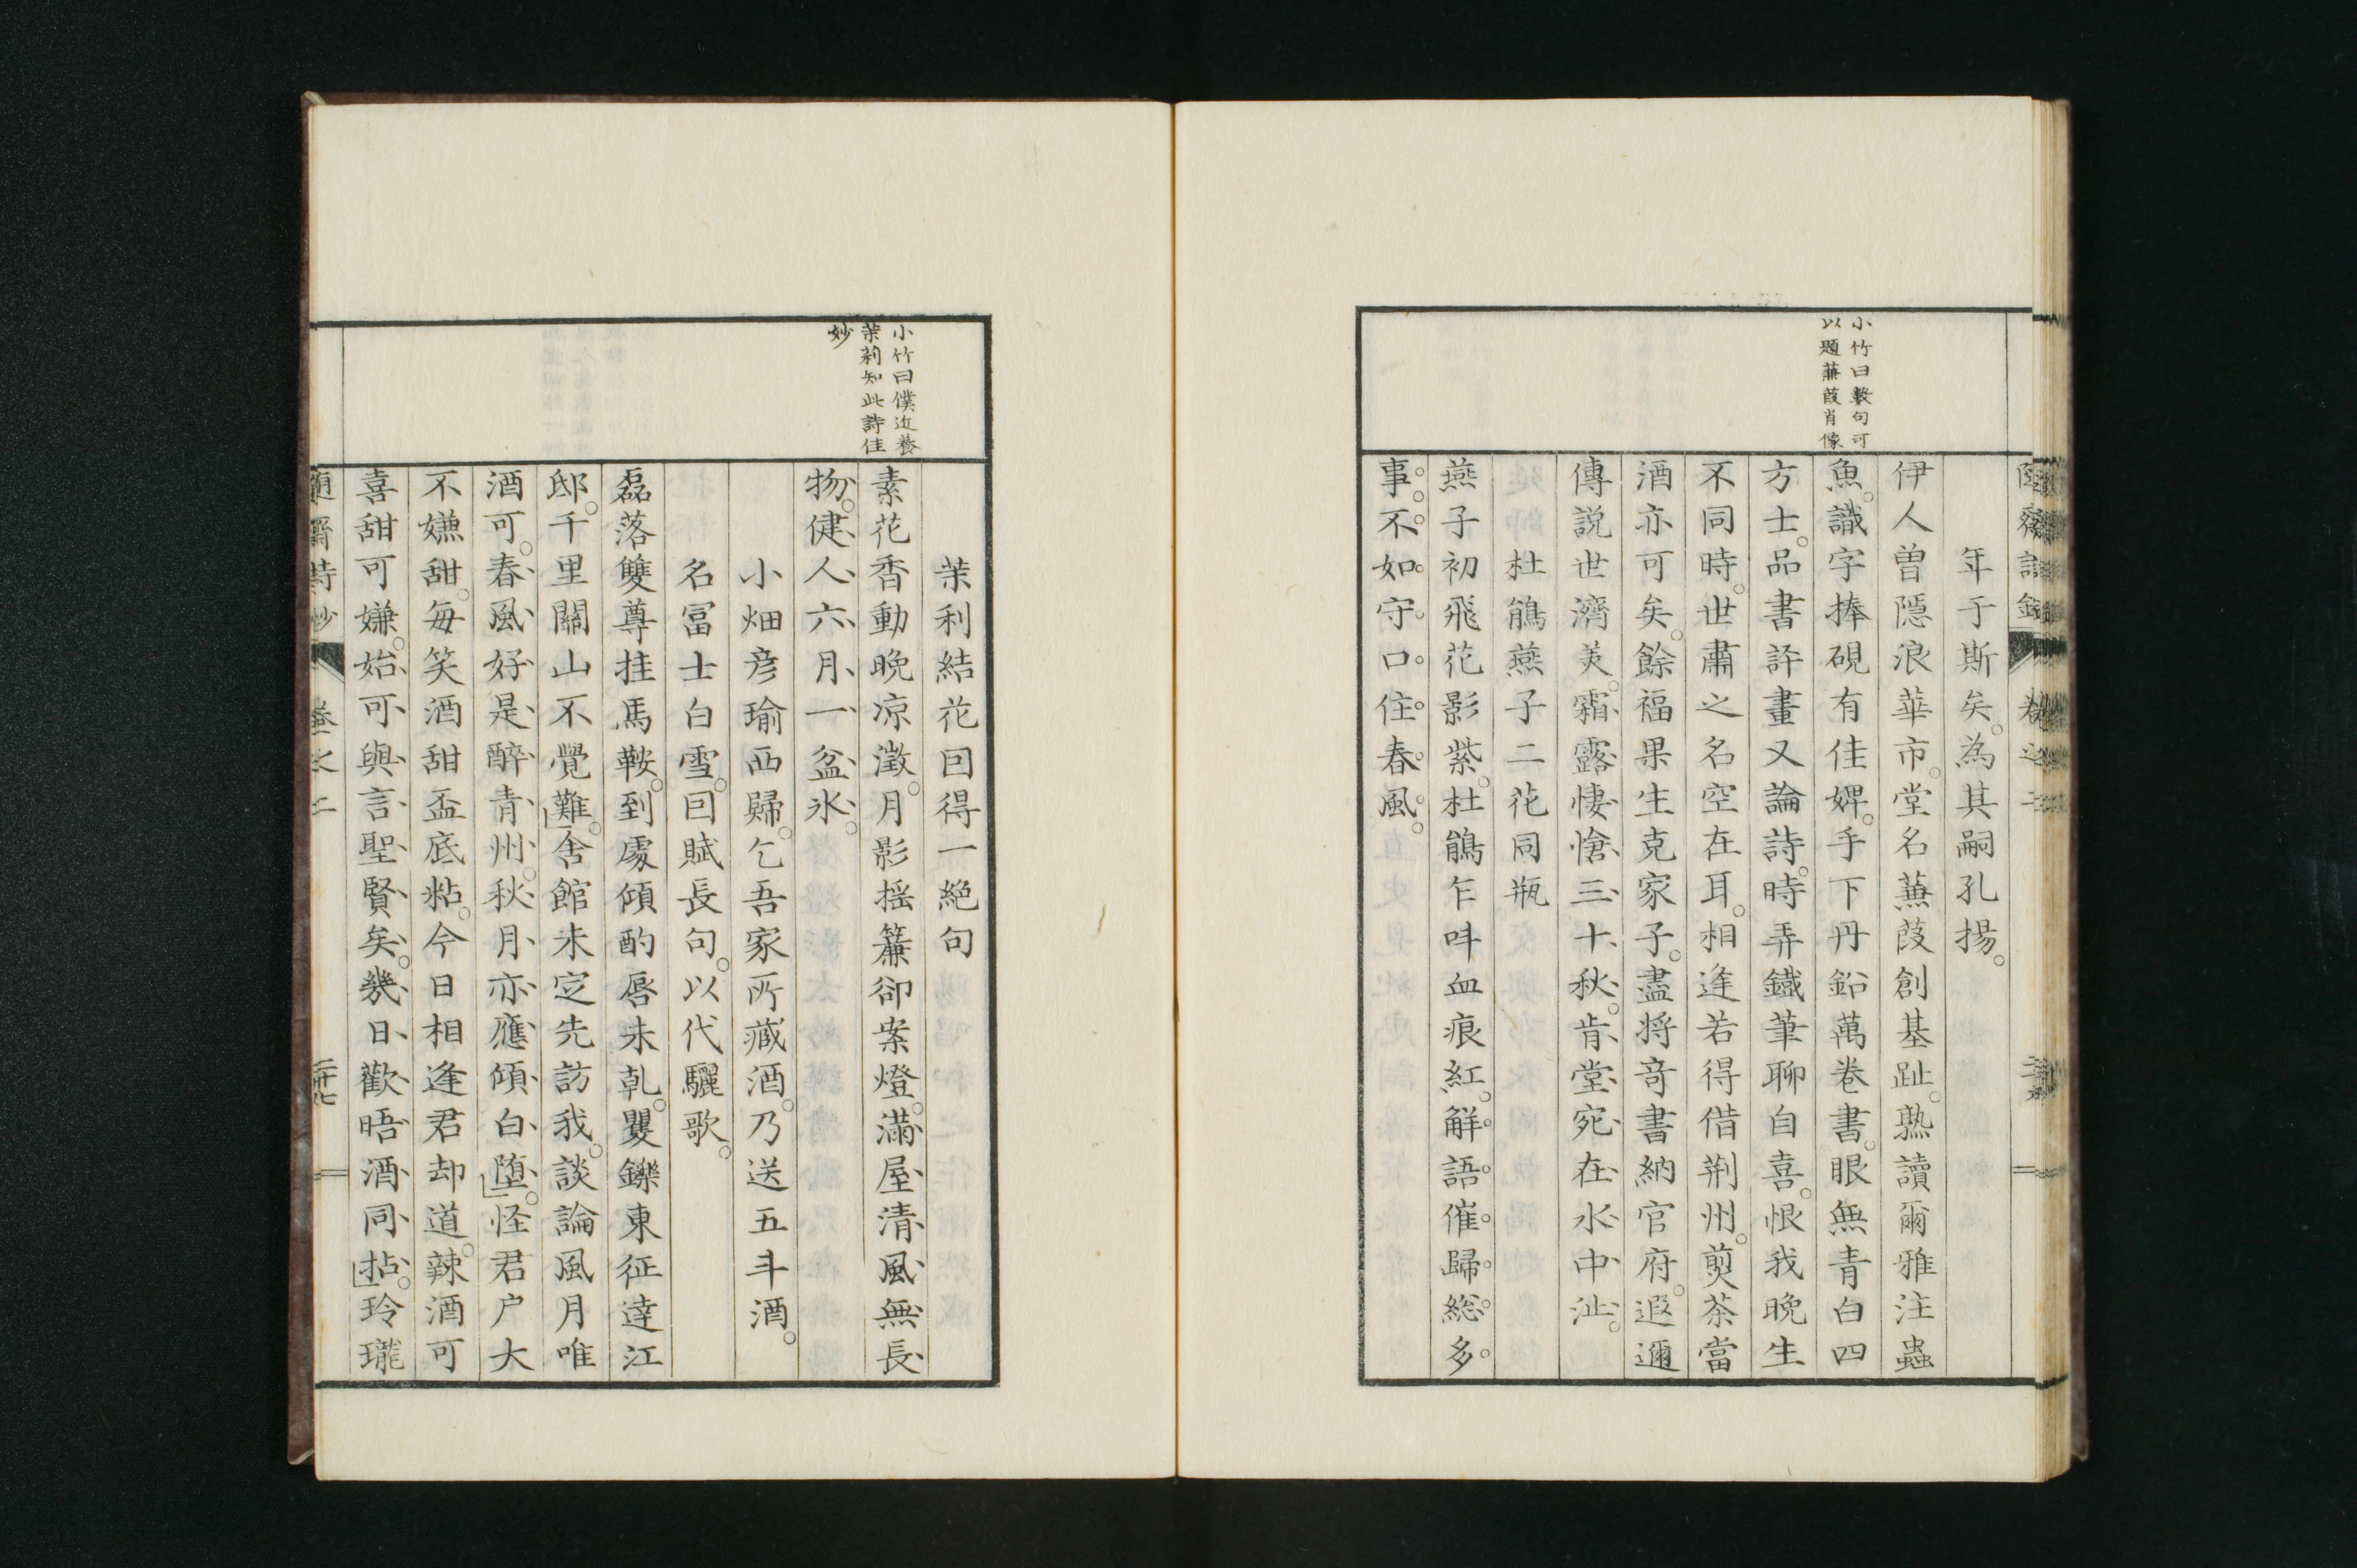 小竹曰數句可
以題蒹葭肖像
年于斯矣。為其嗣孔揚。
伊人曽隱浪華市。堂名蒹葭創基趾。熟讀爾雅注蟲
魚。識字捧硯有佳婢。手下丹鉛萬卷書。眼無青白四
方士。品書評畫又論詩。時弄鐵筆聊自喜。恨我晩生
不同時。世肅之名空在耳。相逢若得借荆州。煎茶當
酒亦可矣。餘福果生克家子。盡将奇書納官府。遐邇
傳説世濟美。霜露悽愴三十秋。肯堂宛在水中沚。
杜鵑燕子二花同瓶
燕子初飛花影紫。杜鵑乍呌血痕紅。觧語催歸総多
事。不如守口住春風。
小竹曰僕近養
茉莉知此詩佳
妙
茉利結花因得一絶句
素花香動晩凉澂。月影揺簾卻案燈。滿屋清風無長
物。健人六月一盆氷。
小畑彦瑜西歸。乞吾家所藏酒。乃送五斗酒。
名冨士白雪。因賦長句。以代驪歌。
磊落雙尊挂馬鞍。到處傾酌唇未乹。矍鑠東征達江
邸。千里關山不覺難。舎館未定先訪我。談論風月唯
酒可。春風好是醉青州。秋月亦應傾白墮。怪君户大
不嫌甜。毎笑酒甜盃底粘。今日相逢君却道。辣酒可
喜甜可嫌。始可與言聖賢矣。幾日歡晤酒同拈。玲瓏
随齋詩鈔 卷之二 二十七